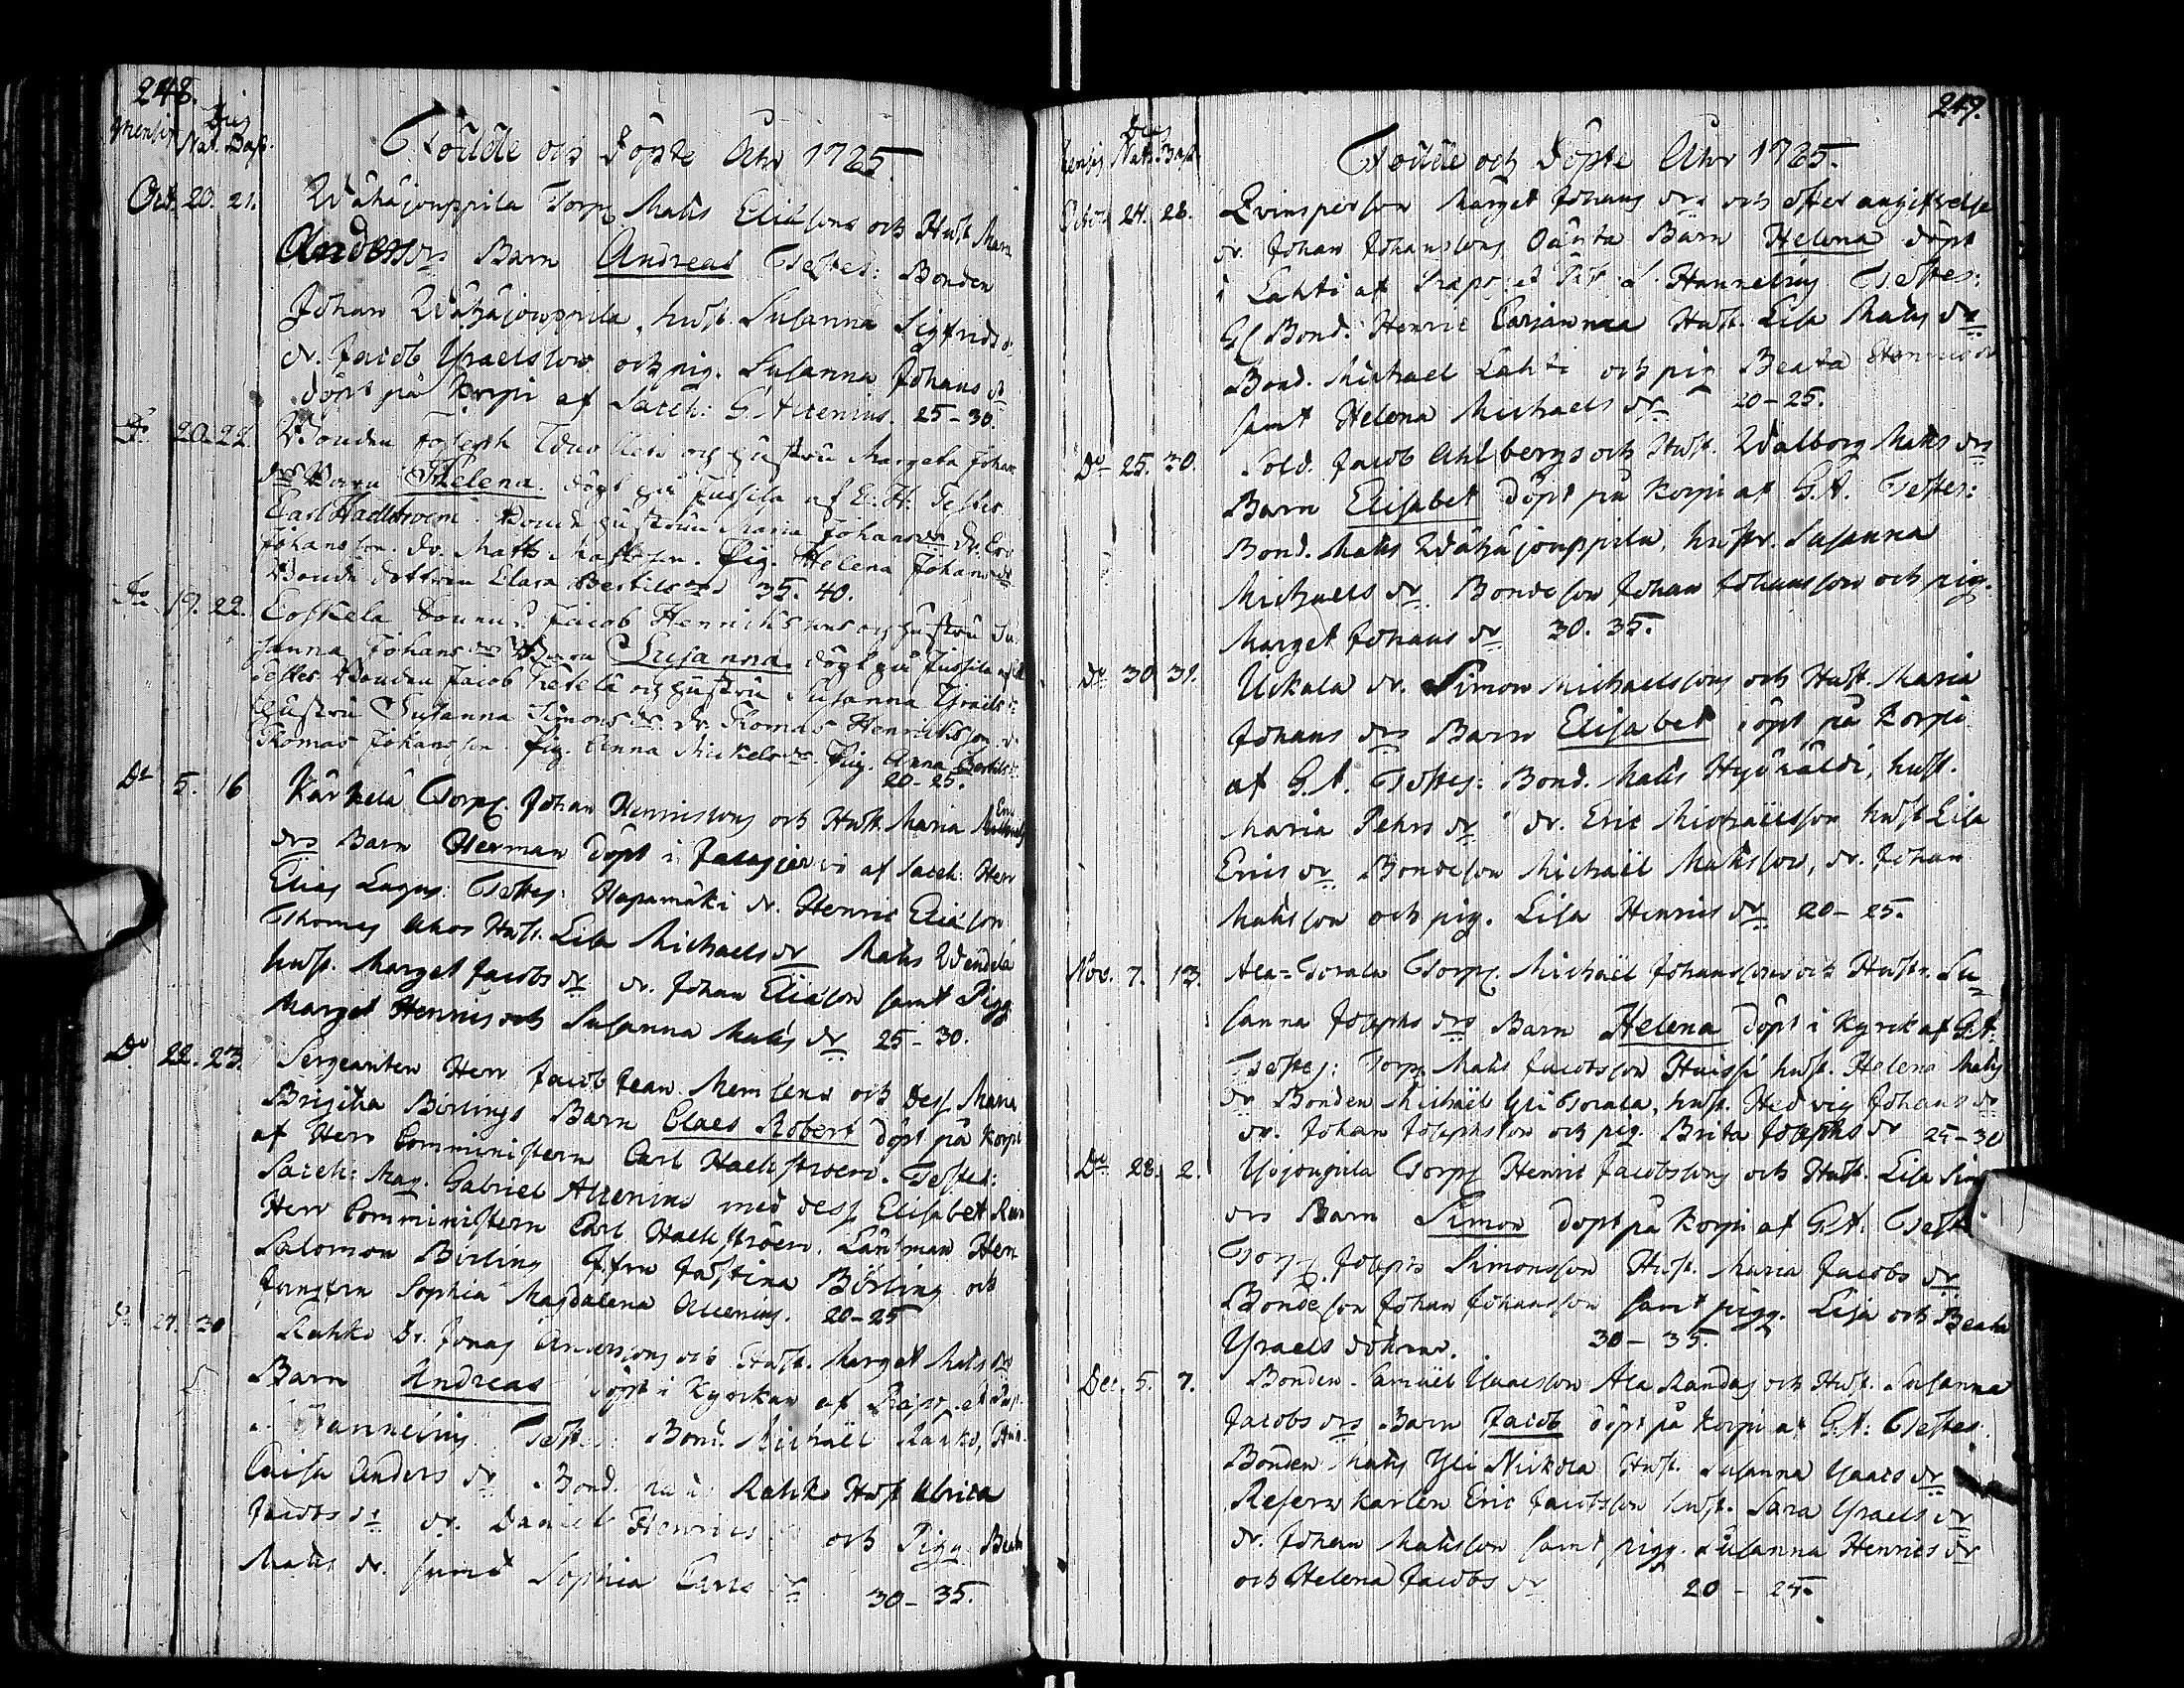 248.
Mensis Dies
Nat. Bapt.
Födde och Döpte Åhr 1785.
Oct. 20. 21. Wähäjouppila Torp. Matts Eliæsons och Hust. Mar.
Anders drs Barn Andreas Testes: Bonden
Johan Wähäjouppila, hust. Susanna Sigfrids dr
dr. Jacob Ysraelsson och pig. Susanna Johans dr
döpt på Korpi af Sacell: G. Arcenius. 25-30.
Do 20. 22. Bonden Joseph och hustru Margeta Johans
drs Barn Helena. döpt på Jussila af C. H: Testes
Carl Haellstroem. Bond. hustrun Maria Johans dr. dr. Eric
Johansson. dr. Matts Mattsson. Pig. Helena Johans dr
Bonde dottren Clara Bertils dr 35. 40.
Do 19. 22. Coskela Jacob Henrikssons och hustru Su-
sanna Johans drs Barn Susanna. döpt på Jussila af C. H.
Testes Bonden Jacob och hustru Susanna Ysraels dr
hustru Susanna Simons dr. dr. Thomas Henriksson. dr
Thomas Johansson. Pig. Anna Mickels dr. Pig. Anna Bertils dr.
20-25.
Do 5. 16 Kärkelä Torp. Johan Henricsons och Hust. Maria
drs Barn Herman döpt i Jalasjärvi af Sacell: Herr
Elias Lagus: Testes: Hapamäki dr. Henric Eliæson
Thomas Ahos Hust. Lisa Michaels dr Matts Wendelä
hust. Marget Jacobs dr dr. Johan Eliæson samt Pigg.
Marget Henrics och Susanna Matts dr 25-30.
Do 22. 23. Sergeanten Herr Jacob Jean Memsens och Dess Maria
Brigitta Börlings Barn Claes Robert döpt på Korpi
af Herr Comministern Carl Haellstroem. Testes:
Sacell: Mag. Gabriel Arcenius med dess Elisabet
Herr Comministern Carl Haellstroem. Länsman Herr
Salomon Börling J.fru Justina Börling och
Jungfru Sophia Magdalena Arcenius. 20-25
Do 27. 30 Rahko Dr. Jonas Anderssons och Hust. Marget Matts drs
Barn Andreas döpt i Kyrckan af Præp. et Past.
a. Hannelius. Testes: Bond. Michaël Rahko, Hust.
Caisa Anders dr. Bond. Rahko Hust. Ulrica
Jacobs dr dr. Daniel Henrics och Pigg. Beata
Matts dr. samt Sophia Carls dr 30-35.
249.
Mensis Dies
Nat. Bapt.
Födde och Döpte Åhr 1785.
October 24. 28. Qvinsperson Marget Johans drs och efter angifvelse
dr. Johan Johanssons Oäckta Barn Helena döpt
i Lahti af Præp. et Past. a Hannelius Testes:
Gl. Bond. Henric Carjanmaa Hust. Lisa Matts dr
Bond. Michael Lahti och pig. Beata Henrics dr
samt Helena Michaels dr 20-25.
Do 25. 30. Sold. Jacob Ahlbergs och Hust. Walborg Matts drs
Barn Elisabet döpt på Korpi af G. A. Testes:
Bond. Matts Wähäjouppila, hustr. Susanna
Michaels dr. Bondeson Johan Johansson och pig.
Marget Johans dr 30. 35.
Do 30 31. Uckala dr. Simon Michaelssons och Hust. Maria
Johans drs Barn Elisabet döpt på Korpi
af G. A. Testes: Bond. Matts Hypäldi, hust.
Maria Pehrs dr dr. Eric Michaelsson hust. Lisa
Erics dr Bondeson Michaël Mattsson, dr. Johan
Mattsson och pig. Lisa Henrics dr 20-25.
Nov. 7. 13. Ala-Torala Torp. Michaël Johanssons och Hustr. Su-
sanna Josephs drs Barn Helena döpt i Kyrck. af G. A.
Testes: Torp. Matts Jacobsson Huissi hust. Helena Matts
dr Bonden Michaël Yli Torala, hust. Hedvig Johans dr
dr. Johan Josephsson och pig. Brita Josephs dr 25-30
Do 28. 2. Ysojoupila Torp. Henric Jacobssons och Hust. Lisa Sim.
drs Barn Simon döpt på Korpi af G. A. Test.
Torp. Josephs Simonsson Hust. Maria Jacobs dr
Bondeson Johan Johansson samt pigg. Lisa och Beata
Ysraels döttrar. 30-35.
Dec. 5. 7. Bonden Samuel Ysaacsson Ala Randas och Hust. Susanna
Jacobs drs Barn Jacob döpt på Korpi af G. A: Testes:
Bonden Matts Yli Nickola Hust. Susanna Ysaacs dr
Reserv karlen Eric Jacobsson hust. Sara Ysraels dr
dr. Johan Mattsson samt pigg. Susanna Henrics dr
och Helena Jacobs dr 20-25